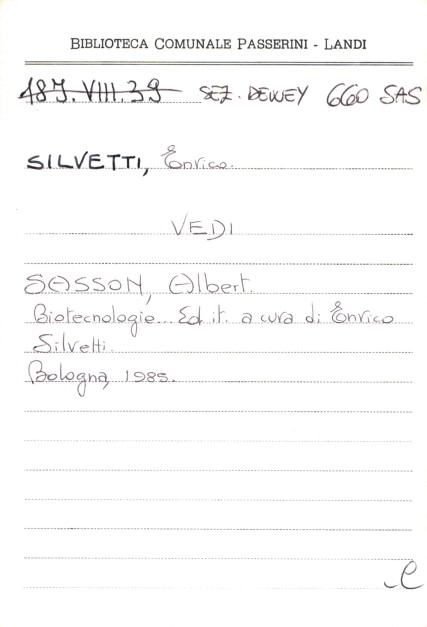 BIBLIOTECA COMUNALE PASSERINI - LANDI
487.VIII.39 SEZ. DEWEY 660 SAS
SILVETTI, Enrico.
VEDI
SASSON, Albert.
Biotecnologie... Ed it. a cura di Enrico
Silvetti.
Bologna, 1985.